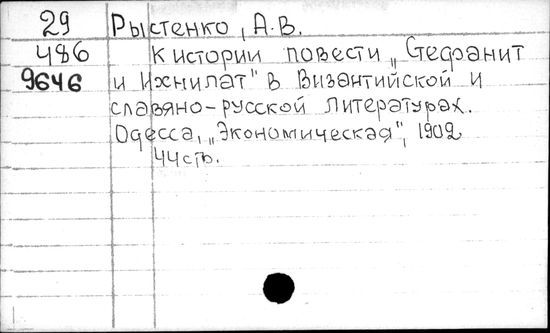 29 Рыстенко, А.В.
486 К истории повести „Стефанит
9646 и Ихнилат" в Византийской и
славяно-русской литературах.
Одесса, „Экономическая", 1902
44 стр.